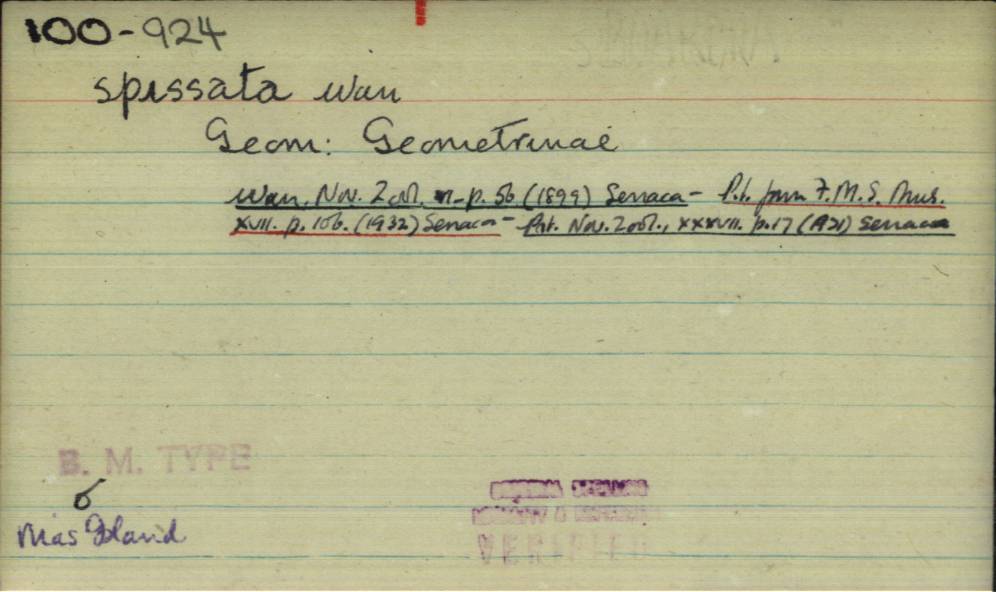 100-924
spissata Warr
Geom: Geometrinae
Warr. Nov. Zool. p. 56 (1899) Senaca - form F.M.S. Mus.
XVII. p. 106. (1932) Senaca - Nov. Zool., XXXVII. p.17 (1931) Senaca
B. M. TYPE
♂
Nias Island
ORIGINAL SPELLING
VERIFIED